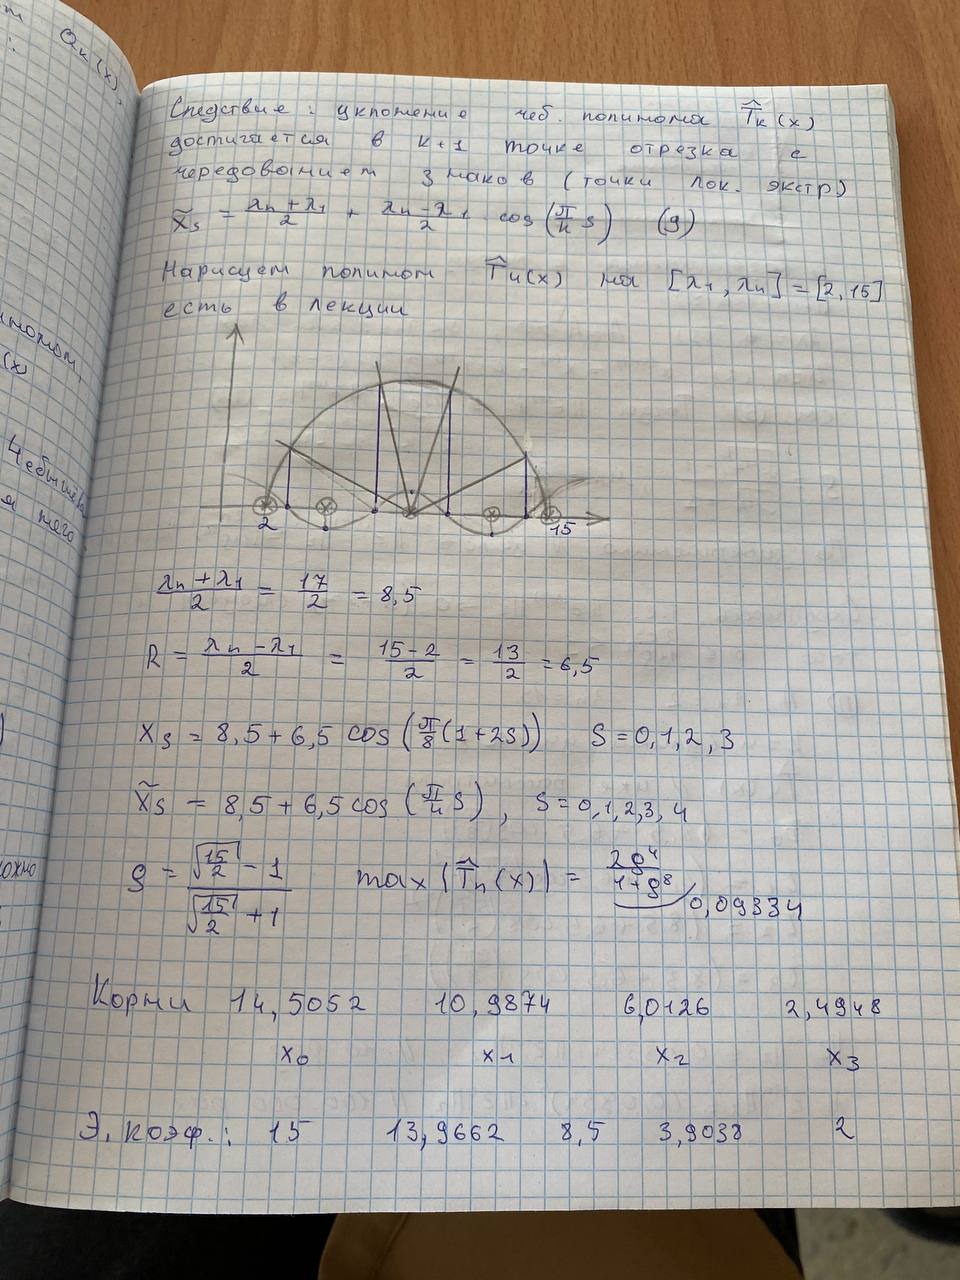 Qк(x),
Следствие: уклонение чеб. полинома T̂к(x)
достигается в к+1 точке отрезка с
чередованием знаков (точки лок. экстр)
x̃s = (λn + λ1)/2 + (λn - λ1)/2 cos(π/к s) (9)
Нарисуем полином T̂4(x) на [λ1, λn] = [2, 15]
есть в лекции
2 15
(λn + λ1)/2 = 17/2 = 8,5
R = (λn - λ1)/2 = (15-2)/2 = 13/2 = 6,5
xs = 8,5 + 6,5 cos(π/8(1+2s)) s = 0,1,2,3
x̃s = 8,5 + 6,5 cos(π/4 s), s = 0,1,2,3,4
ρ = (√(15/2) - 1)/(√(15/2) + 1) max|T̂n(x)| = 2ρ⁴/(1+ρ⁸) 0,09334
Корни 14,5052 10,9874 6,0126 2,4948
x0 x1 x2 x3
Э. коэф.: 15 13,9662 8,5 3,9038 2